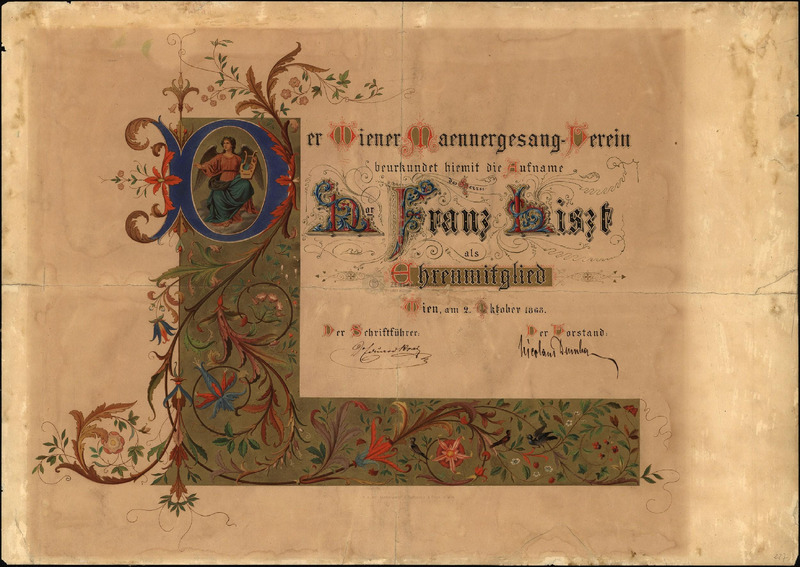 Der Wiener Maennergesang-Verein
beurkundet hiemit die Aufname
des Herrn
Dor Franz Liszt
als
Ehrenmitglied
Wien, am 2. Oktober 1868.
Der Schriftführer: Der Vorstand:
Nicolaus Dumba